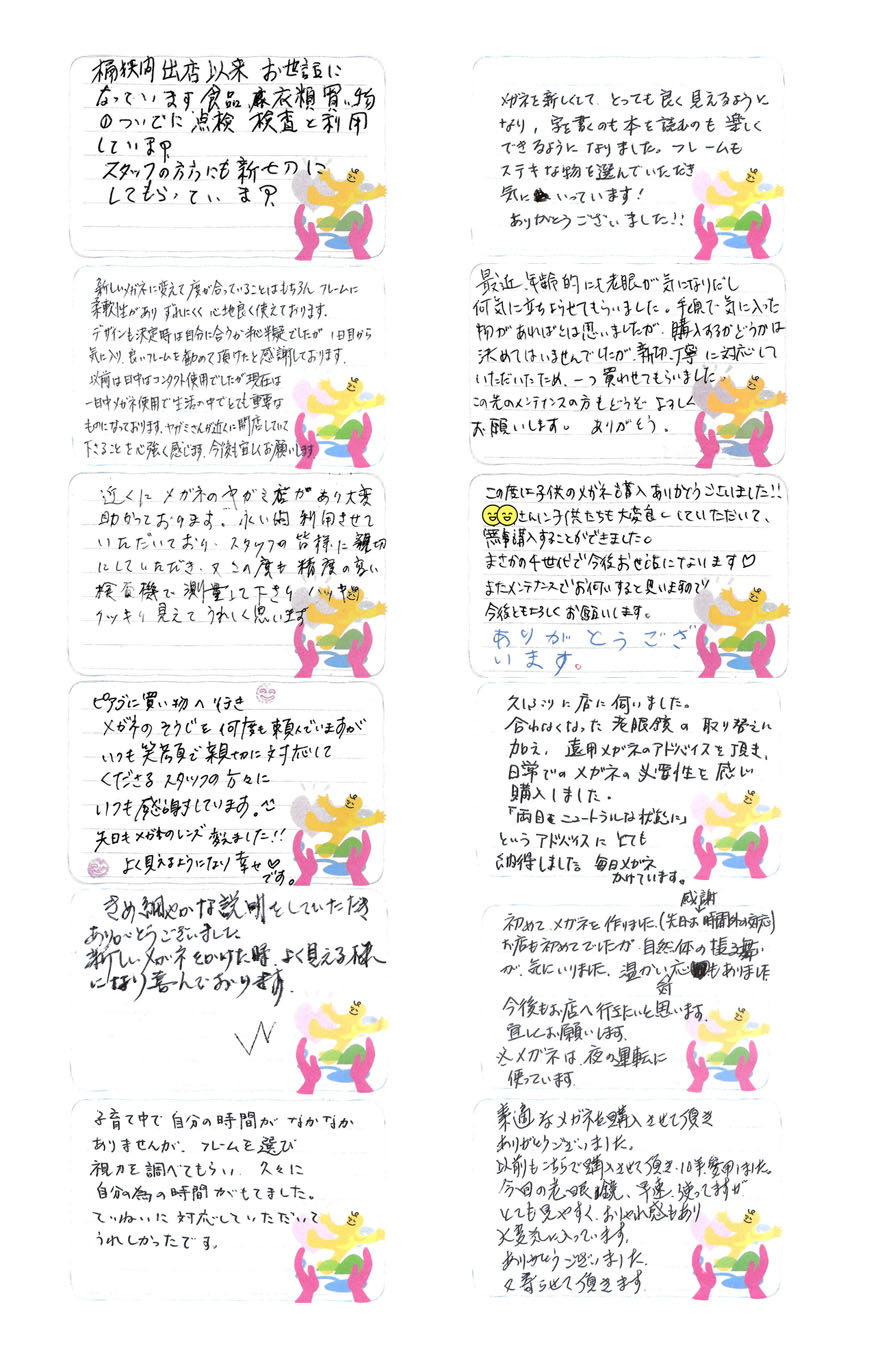 桶狭間出店以来 お世話に
なっています 食品、衣類 買い物
のついでに 点検 検査と利用
しています
スタッフの方々にも親切に
してもらっています
メガネを新しくして、とっても良く見えるように
なり、字を書くのも本を読むのも楽しく
できるようになりました。フレームも
ステキな物を選んでいただき
気にいっています！
ありがとうございました!!
新しいメガネに変えて度が合っていることはもちろん フレームに
柔軟性があり ずれにくく 心地良く使えております。
デザインも決定時は自分に合うか半信半疑でしたが 1日目から
気に入り、良いフレームを勧めて頂けたと感謝しております。
以前は日中はコンタクト使用でしたが現在は
一日中メガネ使用で生活の中でとても重要な
ものになっております。ヤガミさんが近くに開店していて
下さることを心強く感じます。今後も宜しくお願いします
最近、年齢的にも老眼が気になりだし
何気に立ちよらせてもらいました。手頃で気に入った
物があればとは思いましたが、購入するかどうかは
決めてはいませんでしたが、親切、丁寧に対応して
いただいたため、一つ買わせてもらいました。
この先のメンテナンスの方もどうぞ よろしく
お願いします。 ありがとう。
近くに メガネのヤガミ店があり大変
助かっております。永い間 利用させて
いただいており、スタッフの皆様に親切
にしていただき、又この度も精度の高い
検査機で 測量して下さり ハッキリ
クッキリ見えて うれしく思います
この度は子供のメガネ購入ありがとうございました!!
さんに子供たちも大変良くしていただいて、
無事購入することができました。
まさかの千世代で今後お世話になります♡
またメンテナンスでお伺いすると思いますので
今後ともよろしくお願いします。
ありがとうござ
います。
ピアゴに買い物へ行き
メガネのそうじを何度も頼んでいますが
いつも笑顔で親切に対応して
くださるスタッフの方々に
いつも感謝しています。
先日もメガネのレンズ変えました!!
よく見えるようになり幸せ♡
です。
久しぶりに店に伺いました。
合わなくなった老眼鏡の取り替えに
加え、遠用メガネのアドバイスを頂き、
日常でのメガネの必要性を感じ
購入しました。
「両目をニュートラルな状態に」
というアドバイスにとても
納得しました 毎日メガネ
かけています。
きめ細やかな説明をしていただき
ありがとうございました
新しいメガネをかけた時、よく見える様
になり喜んでおります。
感謝
初めてメガネを作りました。(先日は時間外の対応)
お店も初めてでしたが、自然体の振る舞い
が、気にいりました。温かい応対もありました
今後もお店へ行きたいと思います。
宜しくお願いします。
※メガネは、夜の運転に
使っています。
子育て中で 自分の時間が なかなか
ありませんが、フレームを選び
視力を調べてもらい、久々に
自分の為の時間がもてました。
ていねいに対応していただいて
うれしかったです。
素適なメガネを購入させて頂き
ありがとうございました。
以前もこちらで購入させて頂き、10年愛用しました。
今回の老眼鏡、早速使ってますが
とても見やすく、おしゃれ感もあり
大変気に入っています。
ありがとうございました。
又寄らせて頂きます。